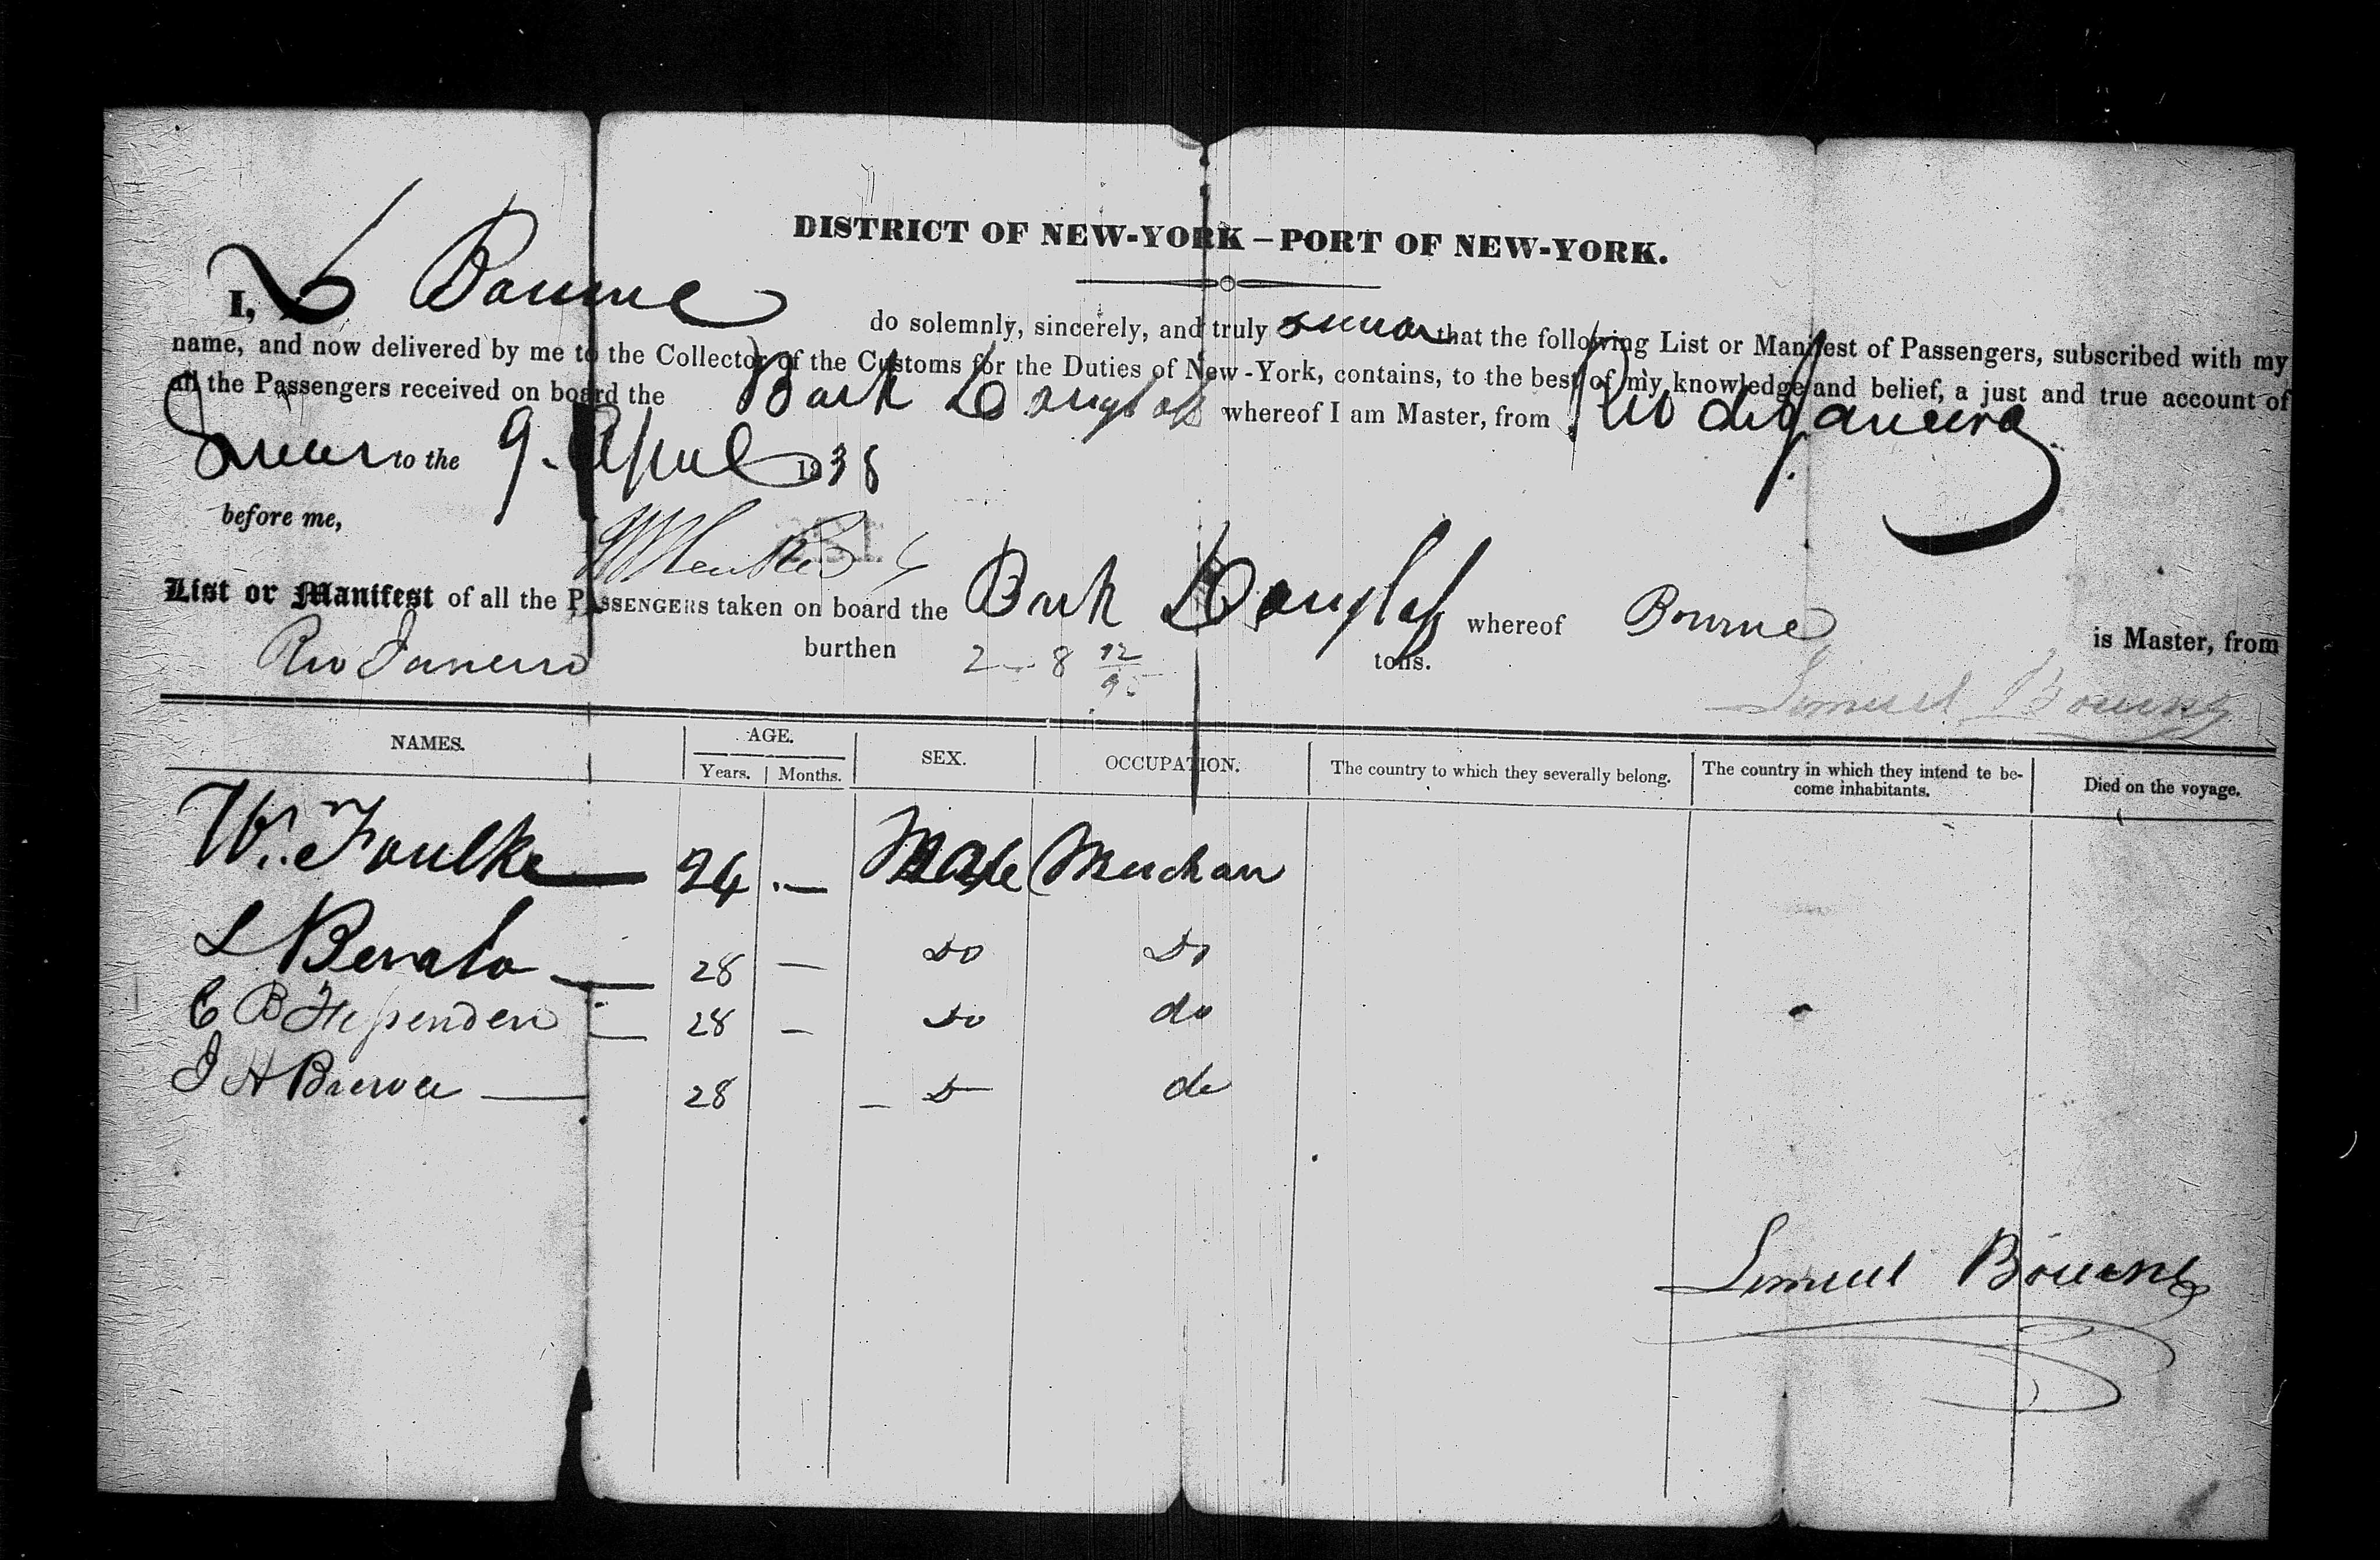 DISTRICT OF NEW-YORK – PORT OF NEW-YORK.
I, L Bourne do solemnly, sincerely, and truly swear that the following List or Manifest of Passengers, subscribed with my
name, and now delivered by me to the Collector of the Customs for the Duties of New-York, contains, to the best of my knowledge and belief, a just and true account of
all the Passengers received on board the Bark Douglass whereof I am Master, from Rio de Janeiro
Sworn to the 9. April 1838
before me,
List or Manifest of all the PASSENGERS taken on board the Bark Douglass whereof Bourne is Master, from
Rio Janeiro burthen tons.
Lemuel Bourne
NAMES. AGE. SEX. OCCUPATION. The country to which they severally belong. The country in which they intend to be-
come inhabitants. Died on the voyage.
Years. Months.
W. Foulke 24 — Male Merchan
L 28 — Do Do
C B 28 — Do do
J H 28 — D do
Lemuel Bourne